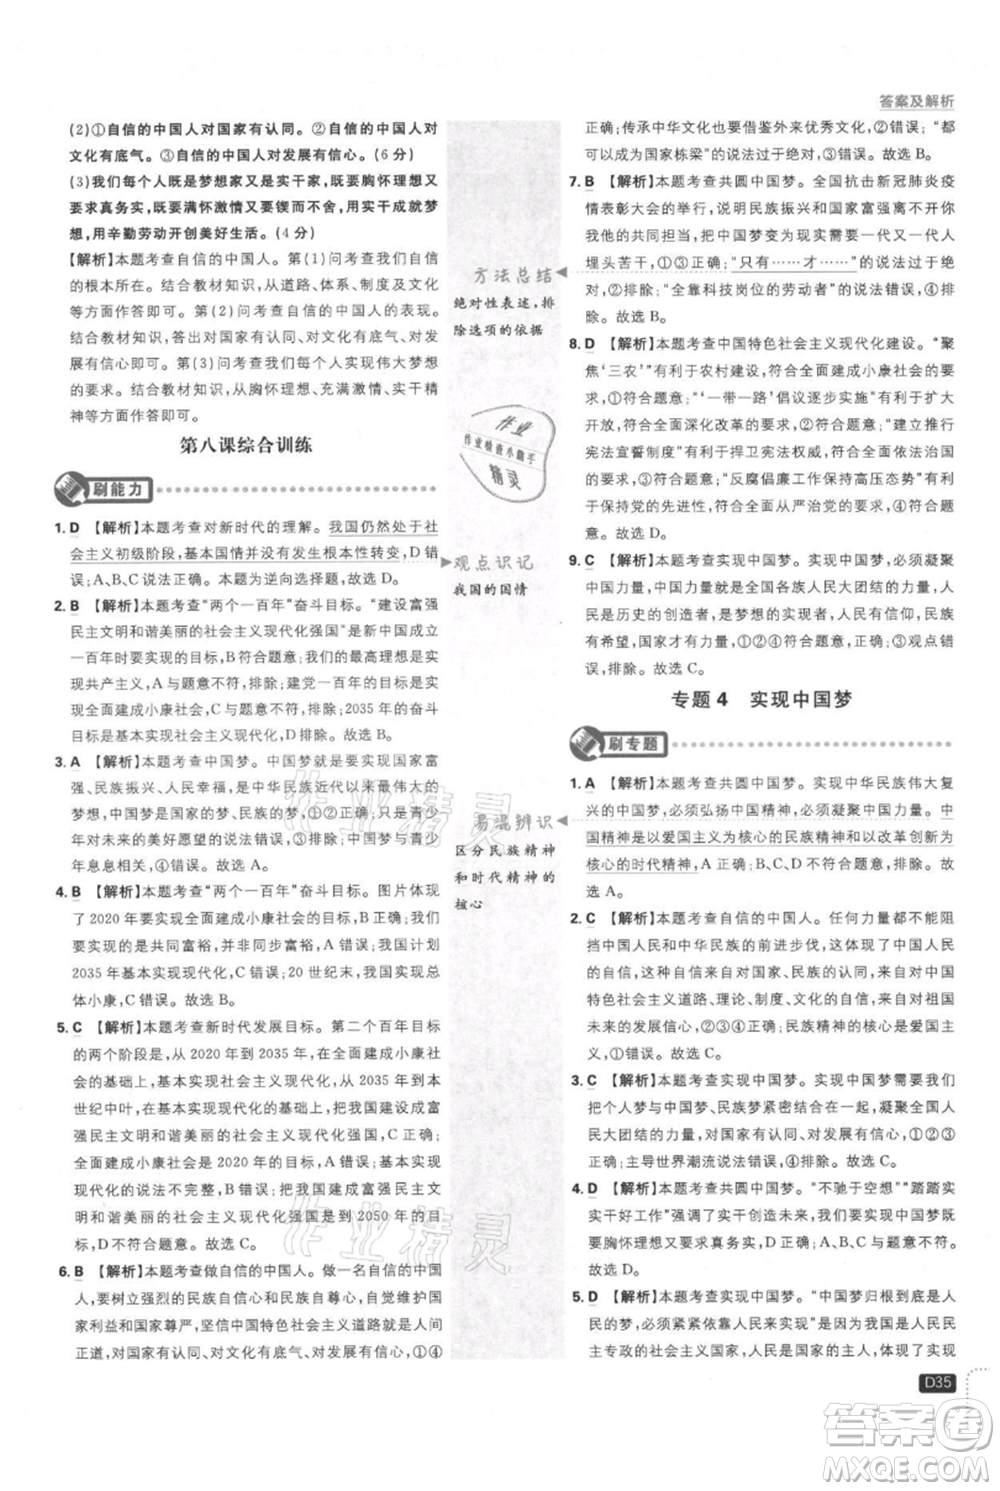 答案及解析
(2)①自信的中国人对国家有认同。②自信的中国人对
文化有底气。③自信的中国人对发展有信心。(6 分)
(3)我们每个人既是梦想家又是实干家,既胸怀理想又
要求真务实,既充满激情又锲而不舍,执着追求伟大梦
想,用辛勤劳动开创美好生活。(4 分)
【解析】本题考查自信的中国人。第(1)问考查我们自信
的根本所在。结合教材知识,从道路、理论、制度、文化等
方面作答即可。第(2)问考查自信的中国人的表现。
结合教材知识,答出对国家有认同、对文化有底气、对发
展有信心即可。第(3)问考查我们每个人实现伟大梦想
的要求。结合教材知识,从胸怀理想、充满激情、实干精
神等方面作答即可。
第八课综合训练
刷能力
1. D 【解析】本题考查对新时代的理解。我国仍然处于社
会主义初级阶段,基本国情并没有发生根本性转变,D 错
误;A、B、C 说法正确。本题为逆向选择题,故选 D。
2. B 【解析】本题考查“两个一百年”奋斗目标。“建设富强
民主文明和谐美丽的社会主义现代化强国”是新中国成立
一百年时要实现的目标,B符合题意;我们的最高理想是
实现共产主义,A 与题意不符,排除;建党一百年的目标
是全面建成小康社会,C 与题意不符,排除;2035 年的奋斗
目标是基本实现现代化,D 与题意不符,排除。故选 B。
3. A 【解析】本题考查中国梦。中国梦就是要实现国家富
强、民族振兴、人民幸福。实现中国梦是近代以来最伟大的
梦想,中国梦是国家的、民族的梦,①②正确;只是青少
年对未来的美好愿望的说法错误,③错误;中国梦与青少
年息息相关,④错误。故选 A。
4. B 【解析】本题考查“两个一百年”奋斗目标。图片体现
了 2020 年要实现全面建成小康社会的目标,B 正确;我们
要实现的是共同富裕,并非同等富裕,A 错误;我国计划
2035 年基本实现现代化,D 错误;20 世纪末,我国实现总
体小康,C 错误。故选 B。
5. C 【解析】本题考查新时代发展目标。第二个百年目标
的两个阶段,是从 2020 年到 2035 年,在全面建成小康社
会的基础上,基本实现社会主义现代化;从 2035 年到本
世纪中叶,在基本实现现代化的基础上,把我国建成富
强民主文明和谐美丽的社会主义现代化强国,C 正确;
全面建成小康社会是 2020 年的目标,A 错误;基本实现
现代化的说法不完整,B 错误;建成富强民主文明和谐
美丽的社会主义现代化强国是到 2050 年的目标,D
错误。故选 C。
6. B 【解析】本题考查做自信的中国人。做自信的中国
人,要树立强烈的民族自信心和民族自豪感,自觉维护
国家利益和民族尊严,坚信中国特色社会主义是人间
正道,对国家有认同、对文化有底气、对发展有信心,①④
方法总结
绝对性表述,排
除选项的依据
作业
作业检查小助手
精灵
观点识记
我国的国情
易混辨识
区分民族精神
和时代精神的
核心
正确;传承中华文化也要借鉴外来优秀文化,②错误;“都
可以成为国家栋梁”的说法过于绝对,③错误。故选 B。
7. B 【解析】本题考查共圆中国梦。全国抗击新冠肺炎疫
情表彰大会的举行,说明民族振兴和国家富强是人民和
其他的共同追求,中国梦变为现实需要一代又一代人
埋头苦干,①③正确;“只有……才……”的说法过于绝
对,②排除;“全靠科技岗位的劳动者”的说法错误,④
排除。故选 B。
8. D 【解析】本题考查中国特色社会主义现代化建设。“聚
焦‘三农’”有利于农村建设,符合全面建成小康社会的
要求,①符合题意;“‘一带一路’倡议逐步实施”有利于扩大
开放,②不符合全面深化改革,排除;“建立和推行
宪法宣誓制度”有利于依法治国,符合全面依法治国的
要求,③不符合题意;“反腐倡廉工作保持高压态势”有利
于保持党的先进性,符合全面从严治党的要求,④符合
题意。故选 D。
9. C 【解析】本题考查实现中国梦。实现中国梦,必须凝聚
中国力量,这就是全国各族人民大团结的力量。人民
是历史的创造者,是梦想的实现者,人民有信仰,民族
有希望,国家才有力量,①②④符合题意;③观点错
误,排除。故选 C。
专题 4 实现中国梦
刷专题
1. A 【解析】本题考查共圆中国梦。实现中华民族伟大复
兴的中国梦,必须弘扬中国精神,必须凝聚中国力量。中
国精神是以爱国主义为核心的民族精神和以改革创新为
核心的时代精神,A 正确;B、C、D 不符合题意,排除。故
选 A。
2. C 【解析】本题考查自信的中国人。任何力量都不能阻
挡中国人民和中华民族的前进步伐,这体现了中国人民
的自信,这种自信,来自对国家和民族的认同,来自对中国
特色社会主义道路、理论、制度、文化的自信,来自对祖国
未来的发展有信心,①②③正确;民族精神的核心是爱国
主义,④错误。故选 C。
3. C 【解析】本题考查实现中国梦。实现中国梦,我们要
把个人梦与国家梦、民族梦紧密结合在一起,凝聚全国人
民大团结的力量,对国家有认同、对发展有信心,①②③
正确;主导世界潮流说法错误,④排除。故选 C。
4. D 【解析】本题考查共圆中国梦。“不驰于空想”“踏踏
实实干好工作”强调了实干创造未来,实现中国梦,我们
要胸怀理想又要求真务实,D 正确;A、B、C 在题文中没有
体现,排除。故选 D。
5. D 【解析】本题考查中国梦。“中国梦归根到底是人民的
梦,必须紧紧依靠人民来实现”是因为我国是人民民
主专政的社会主义国家,人民是国家的主人,体现了实现
D35
作业精灵
作业精灵
答案圈
MXQE.COM